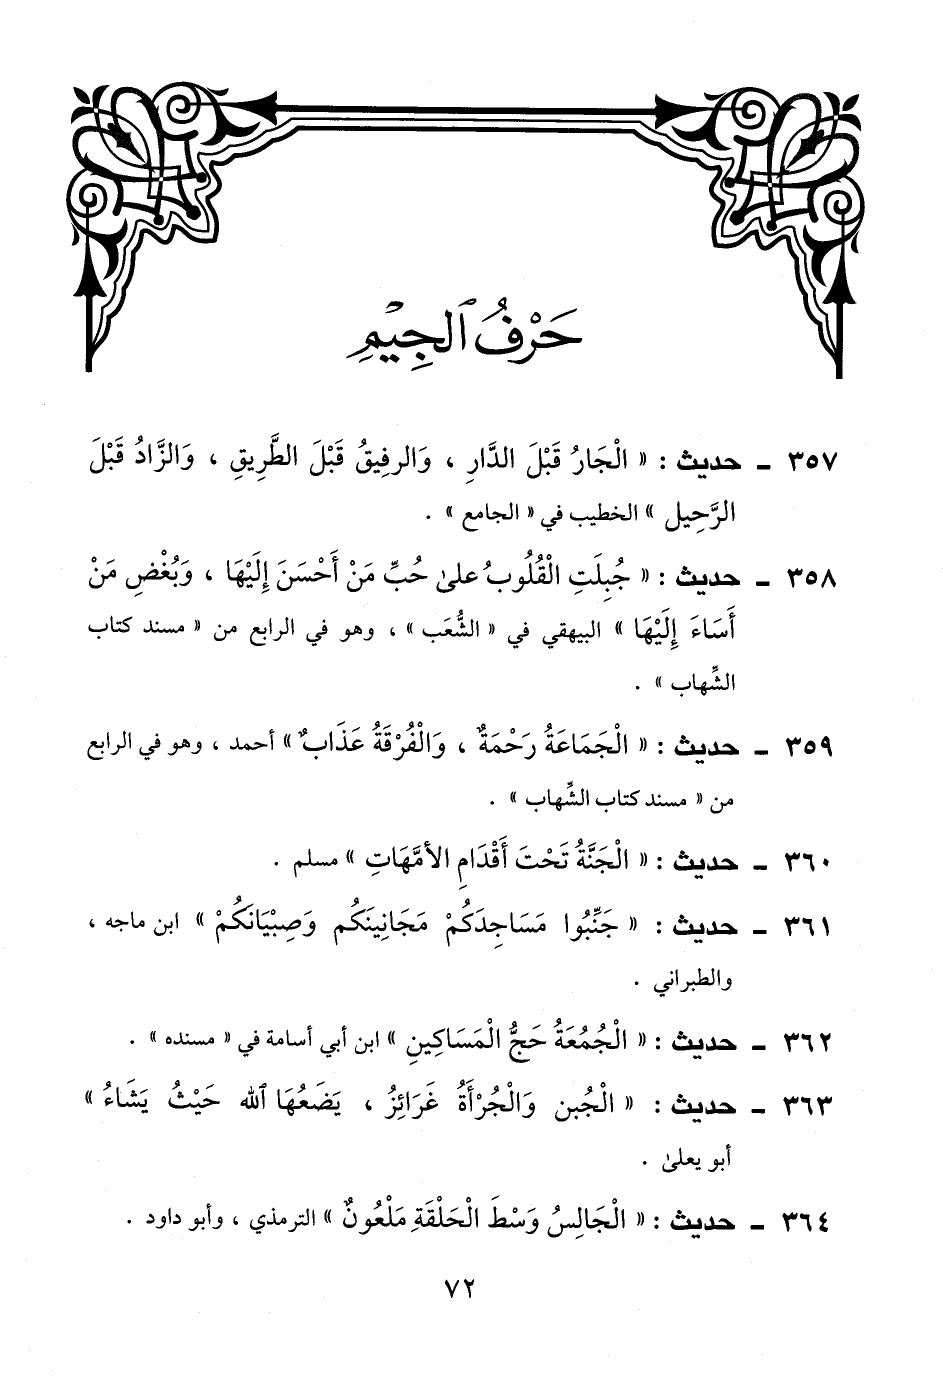 حَرْفُ الْجِيْمِ
٣٥٧ ـ حديث : « الْجَارُ قَبْلَ الدَّارِ ، وَالرفِيقُ قَبْلَ الطَّرِيقِ ، وَالزَّادُ قَبْلَ
الرَّحِيل » الخطيب في « الجامع » .
٣٥٨ ـ حديث : « جُبِلَتِ الْقُلُوبُ علىٰ حُبِّ مَنْ أَحْسَنَ إِلَيْهَا ، وَبُغْضِ مَنْ
أَسَاءَ إِلَيْهَا » البيهقي في « الشُّعَب » ، وهو في الرابع من « مسند كتاب
الشِّهاب » .
٣٥٩ ـ حديث : « الْجَمَاعَةُ رَحْمَةٌ ، وَالْفُرْقَةُ عَذَابٌ » أحمد ، وهو في الرابع
من « مسند كتاب الشِّهاب » .
٣٦٠ ـ حديث : « الْجَنَّةُ تَحْتَ أَقْدَامِ الأمَّهَاتِ » مسلم .
٣٦١ ـ حديث : « جَنِّبُوا مَسَاجِدَكُمْ مَجَانِينَكُم وَصِبْيَانَكُمْ » ابن ماجه ،
والطبراني .
٣٦٢ ـ حديث : « الْجُمُعَةُ حَجُّ الْمَسَاكِينِ » ابن أبي أسامة في « مسنده » .
٣٦٣ ـ حديث : « الْجُبن وَالْجُرْأَةُ غَرَائِزُ ، يَضَعُهَا ٱلله حَيْثُ يَشَاءُ »
أبو يعلىٰ .
٣٦٤ ـ حديث : « الْجَالِسُ وَسْطَ الْحَلْقَةِ مَلْعُونٌ » الترمذي ، وأبو داود .
٧٢